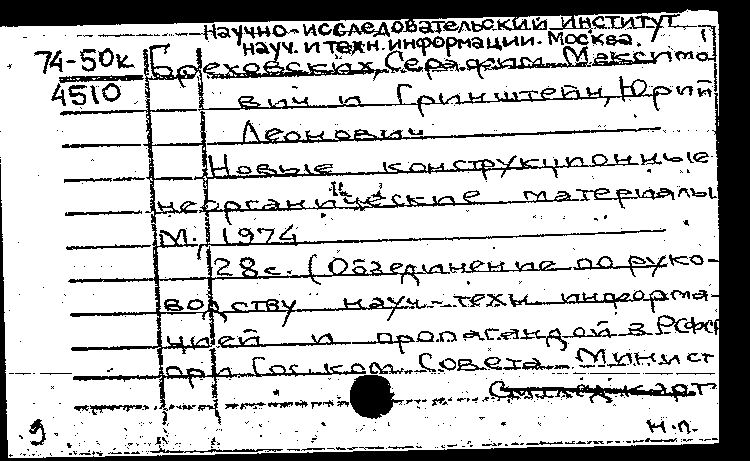 Научно-исследовательский институт
науч. и техн. информации. Москва.
74-50к
4510
Бреховских, Серафим Максимо-
вич и Гринштейн, Юрий
Леонович
Новые конструкционные
неорганические материалы
М., 1974
28с. (Объединение по руко-
водству науч.-техн. информа-
цией и пропагандой в РСФСР
при Гос. ком. Совета Минист
След. карт
9
н.п.